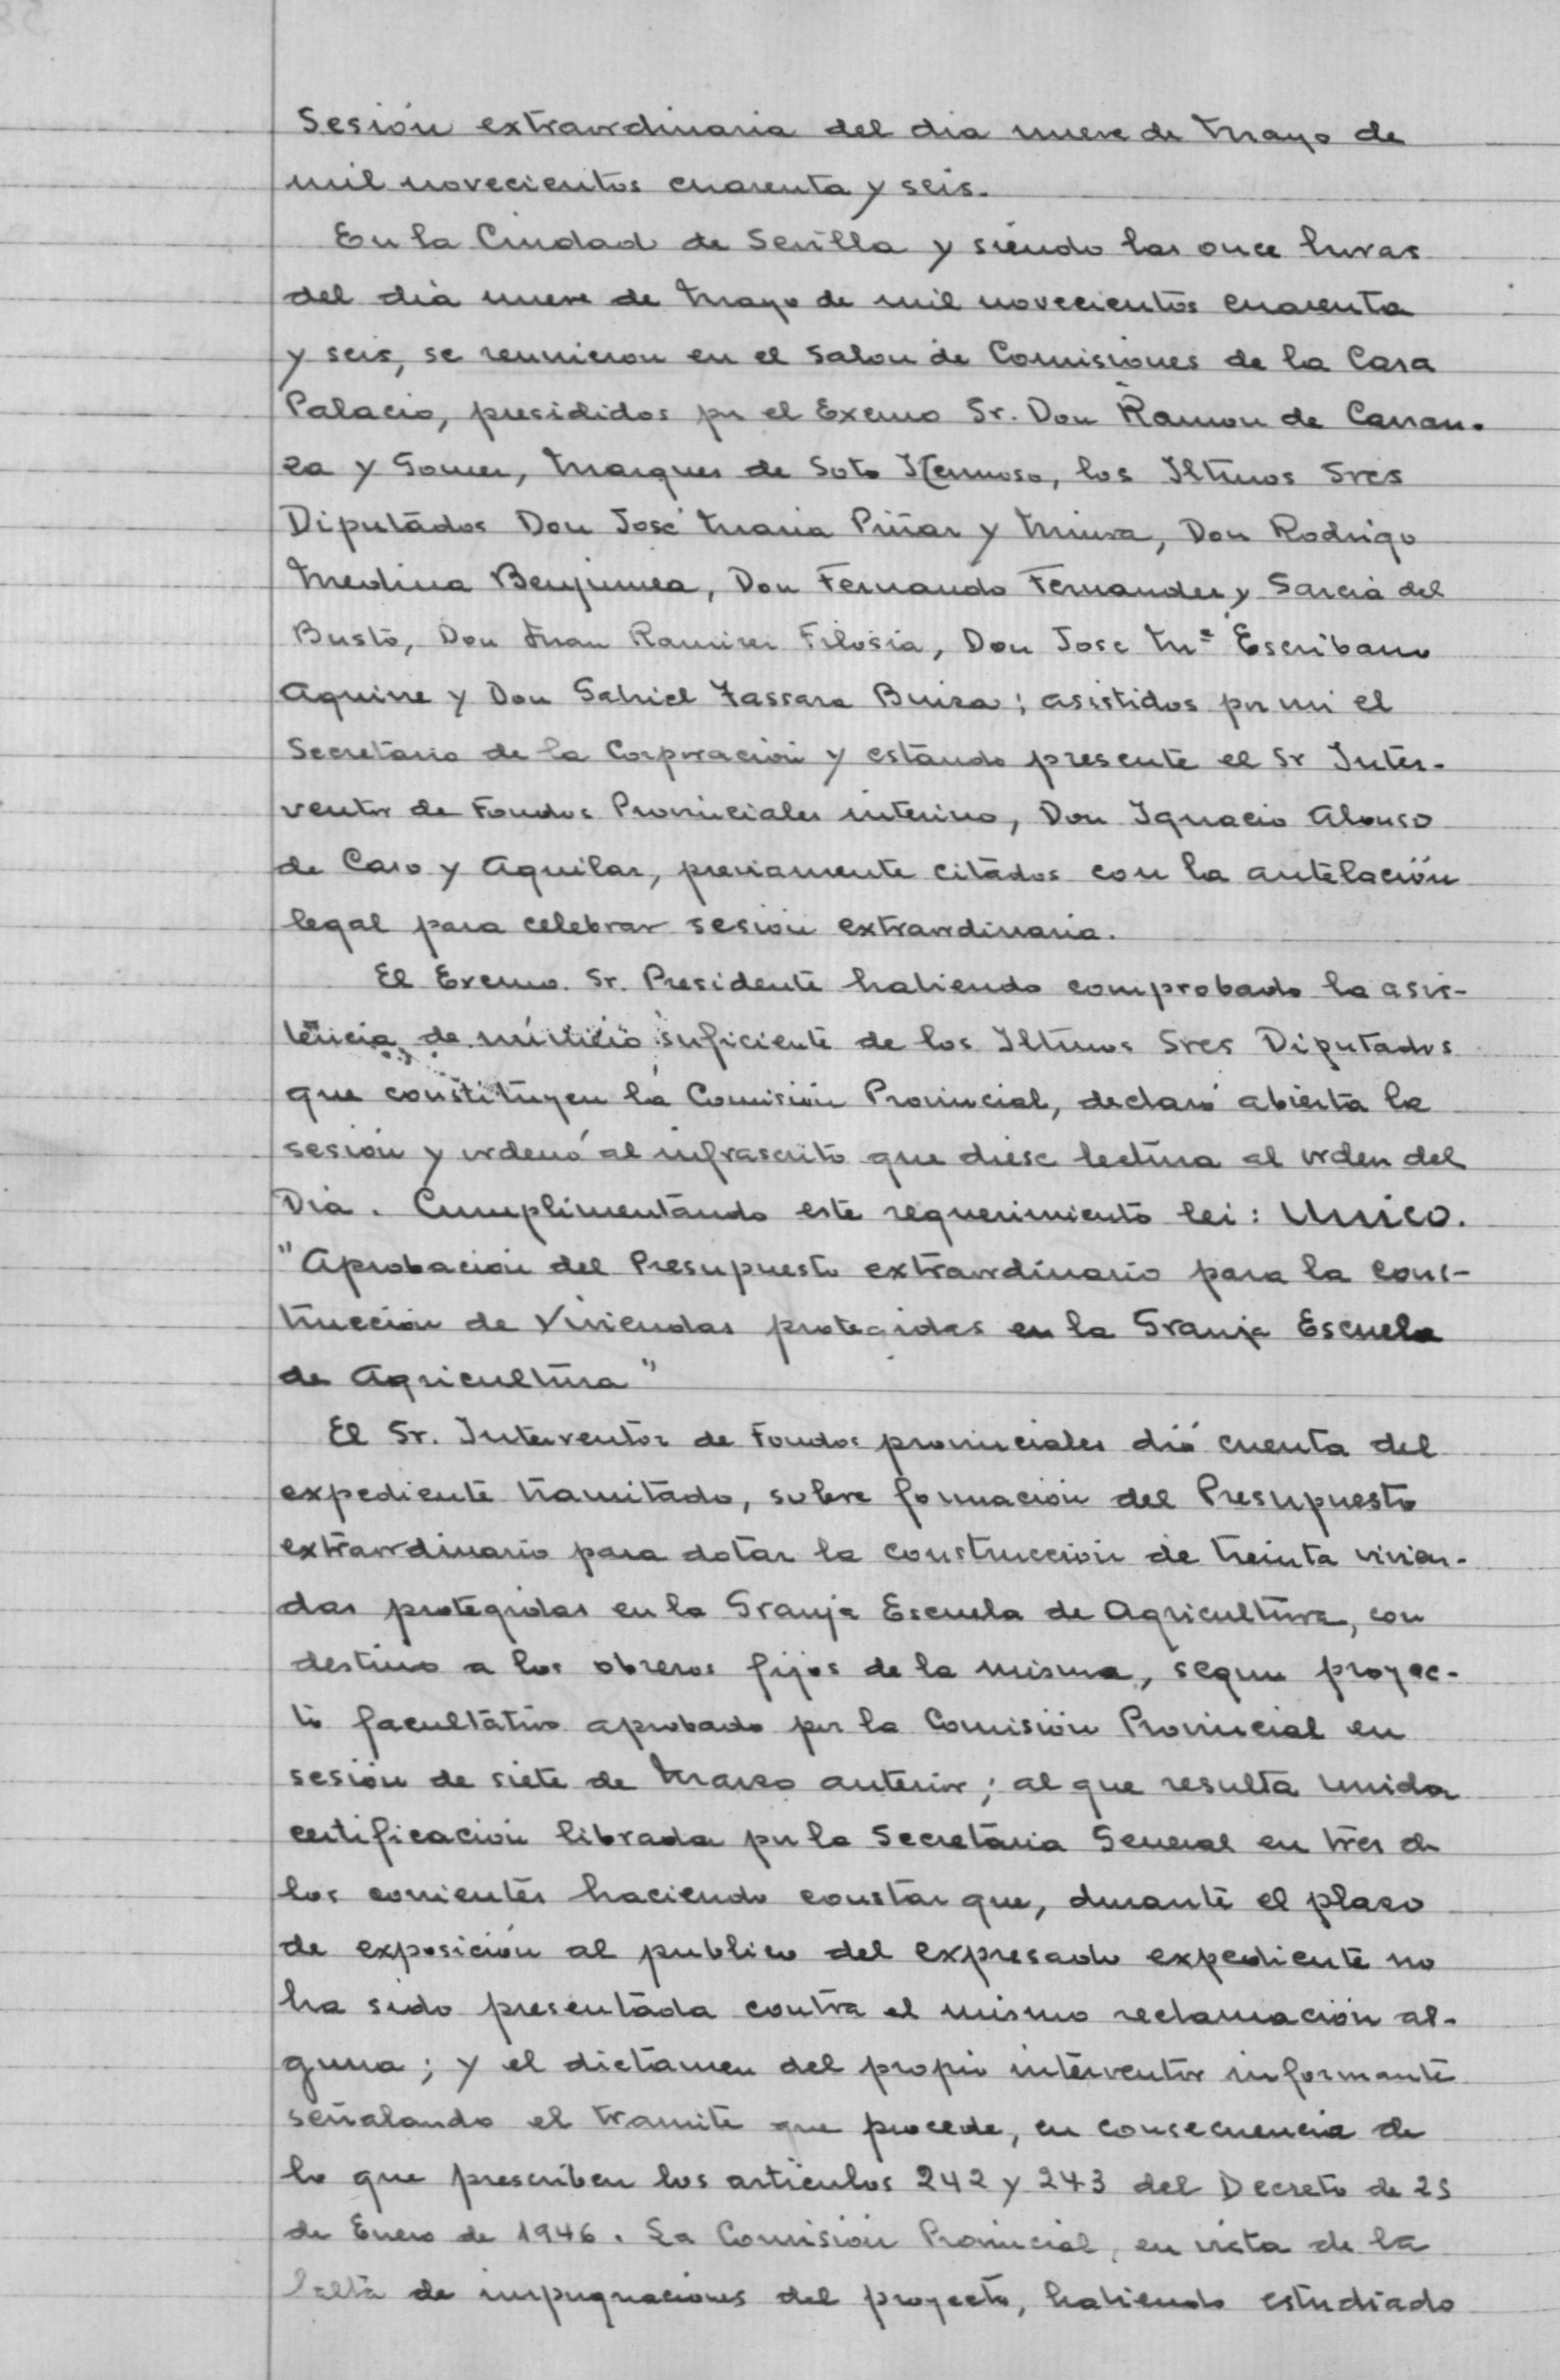 Sesión extraordinaria del dia nueve de Mayo de
mil novecientos cuarenta y seis.
En la Ciudad de Sevilla y siendo las once horas
del dia nueve de Mayo de mil novecientos cuarenta
y seis, se reunieron en el Salon de Comisiones de la Casa
Palacio, presididos por el Excmo Sr. Don Ramon de Carran-
za y Gomez, Marques de Soto Hermoso, los Iltmos Sres
Diputados Don José Maria Piñar y Miura, Don Rodrigo
Medina Benjumea, Don Fernando Fernandez y Garcia del
Busto, Don Juan Ramirez Filosia, Don Jose Mª Escribano
Aguirre y Don Gabriel Fassara Buiza; asistidos por mi el
Secretario de la Corporación y estando presente el Sr Inter-
ventor de Fondos Provinciales interino, Don Ignacio Alonso
de Caso y Aguilar, previamente citados con la antelación
legal para celebrar sesión extraordinaria.
El Excmo. Sr. Presidente habiendo comprobado la asis-
tencia de número suficiente de los Iltmos Sres Diputados
que constituyen la Comisión Provincial, declaró abierta la
sesión y ordenó al infrascrito que diese lectura al orden del
Dia. Cumplimentando este requerimiento lei: Unico.
"Aprobación del Presupuesto extraordinario para la cons-
trucción de Viviendas protegidas en la Granja Escuela
de Agricultura"
El Sr. Interventor de Fondos provinciales dió cuenta del
expediente tramitado, sobre formación del Presupuesto
extraordinario para dotar la construcción de treinta vivien-
das protegidas en la Granja Escuela de Agricultura, con
destino a los obreros fijos de la misma, segun proyec-
to facultativo aprobado por la Comisión Provincial en
sesión de siete de Marzo anterior; al que resulta unida
certificación librada por la Secretaria General en tres de
los corrientes haciendo constar que, durante el plazo
de exposición al publico del expresado expediente no
ha sido presentada contra el mismo reclamación al-
guna; y el dictamen del propio interventor informante
señalando el tramite que procede, en consecuencia de
lo que prescriben los articulos 242 y 243 del Decreto de 25
de Enero de 1946. La Comisión Provincial, en vista de la
falta de impugnaciones del proyecto, habiendo estudiado